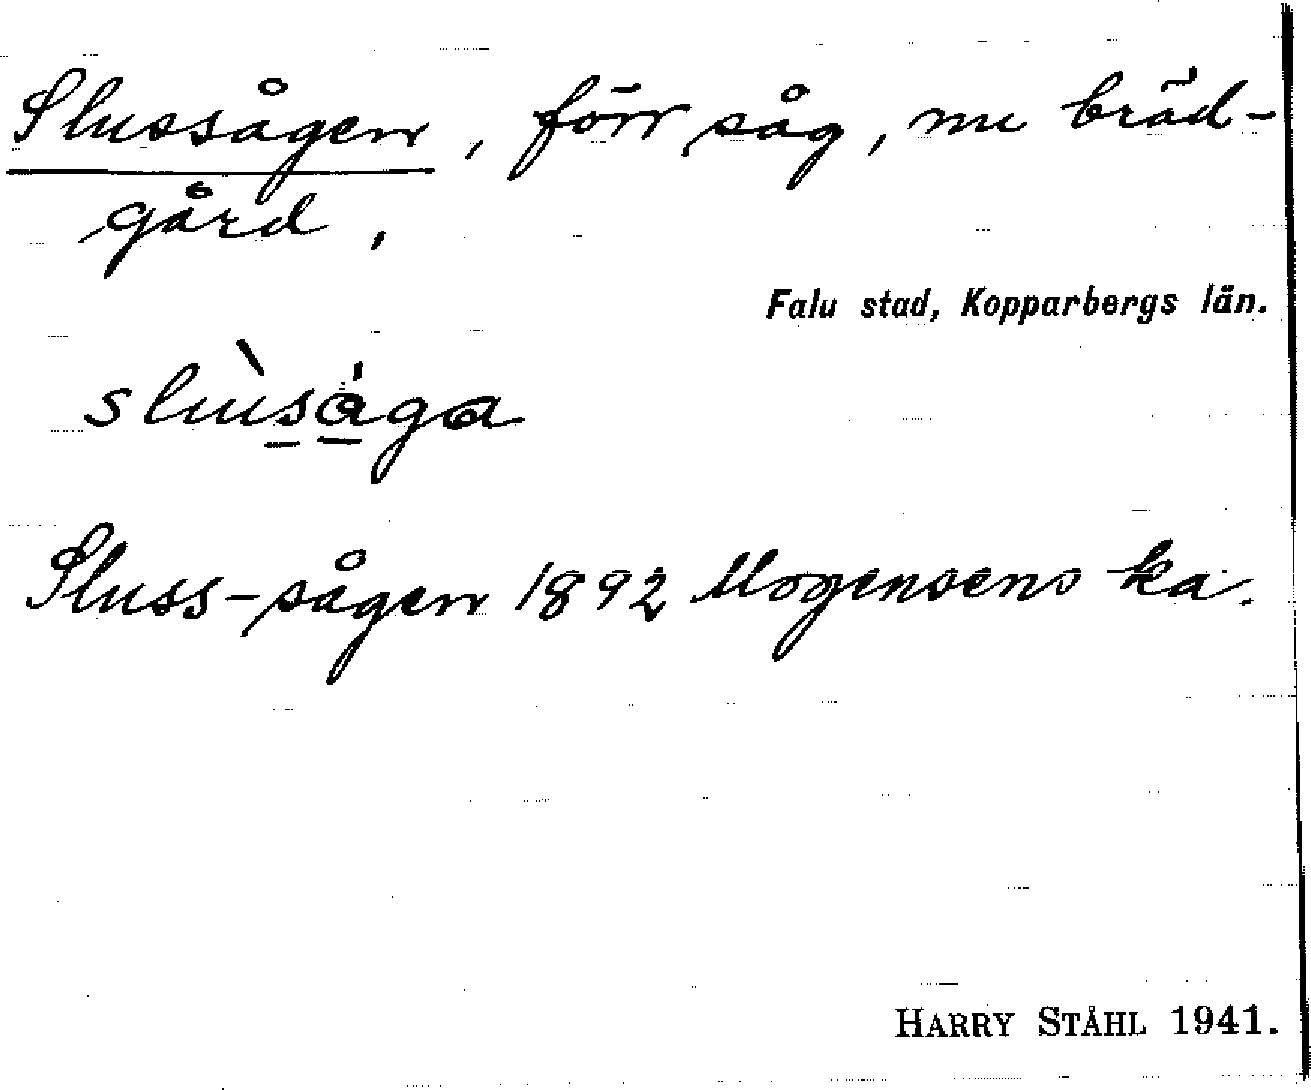 Slussågen, förr såg, nu bräd-
gård.
Falu stad, Kopparbergs län.
slùså̀ga
Sluss-sågen 1892 Mogensens ka.
HARRY STÅHL 1941.